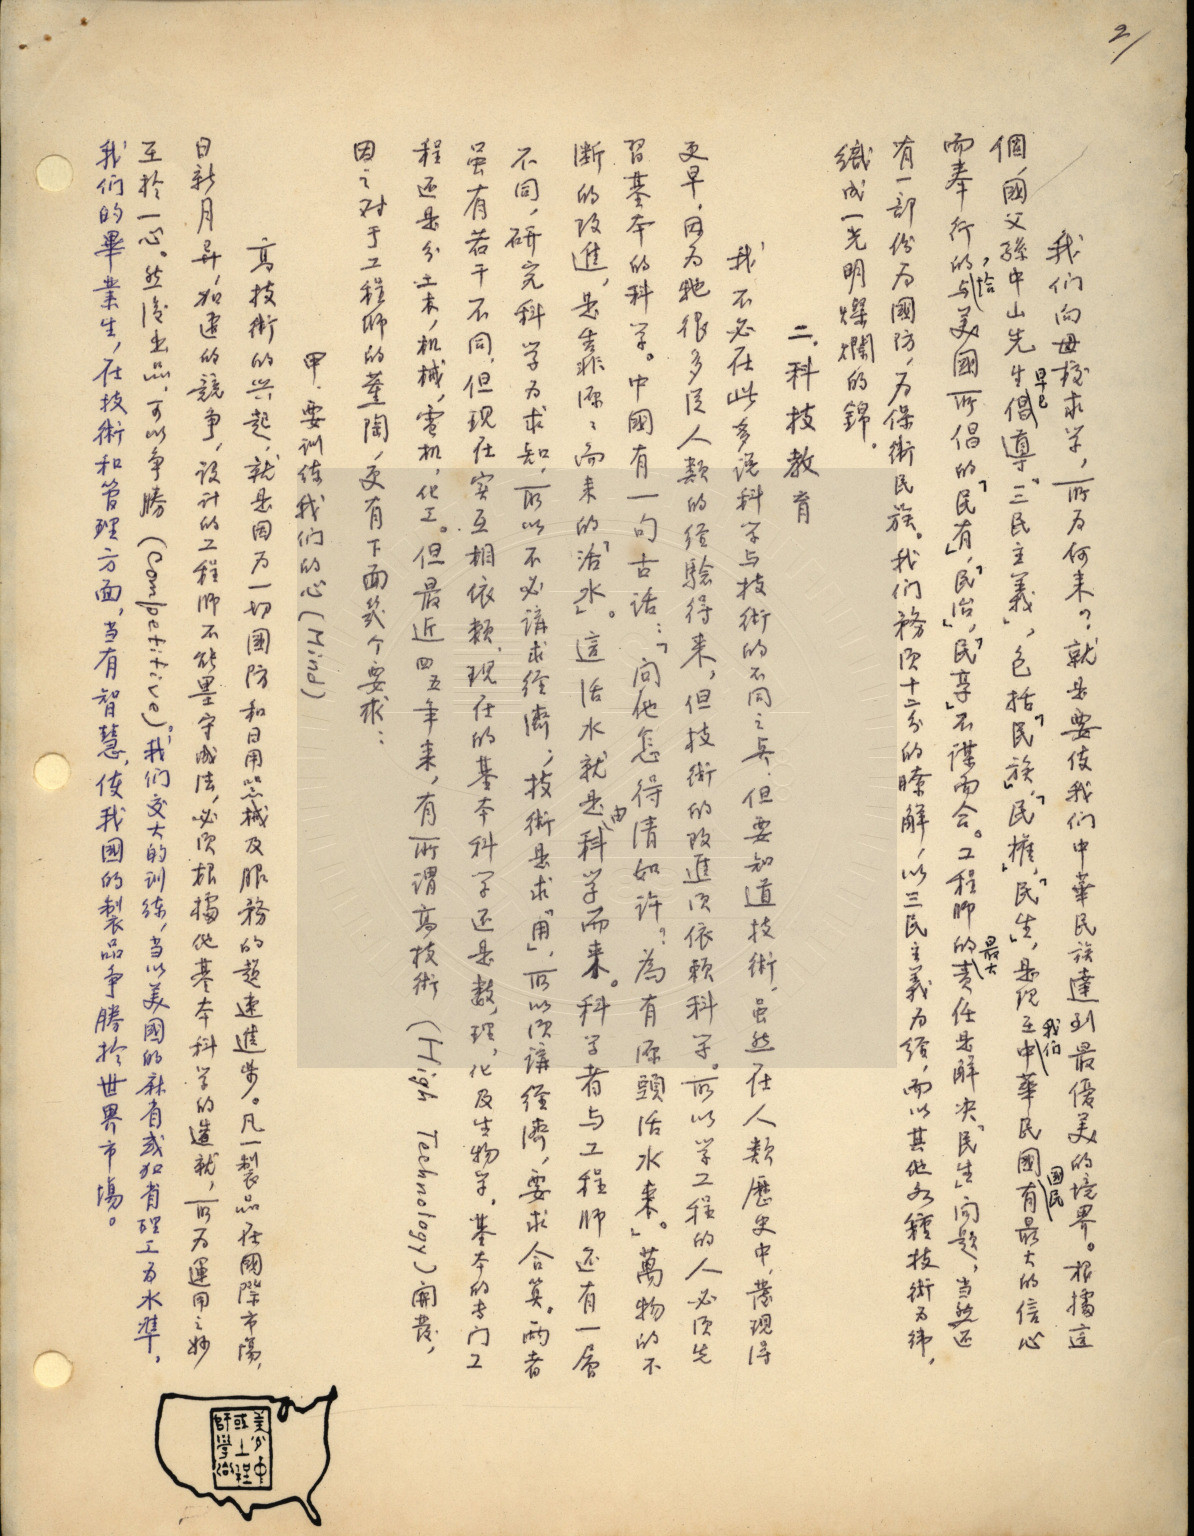 2/
我们向母校求学，所为何来？就是要使我们中華民族達到最優美的境界。根據這
個，國父孫中山先生早已倡導“三民主義”，包括「民族」，「民權」，「民生」，是現在我们中華民國國民有最大的信心
而奉行的，恰与美國所倡的「民有」，「民治」，「民享」不謀而合。工程师的最大責任是解决「民生」问題，当然还
有一部份为國防，为保衛民族。我们務须十二分的瞭解，以三民主義为经，而以其他各種技術为緯，
織成一光明燦爛的錦。
二．科技教育
我不必在此多说科学与技術的不同之奌，但要知道技術，虽然在人類歷史中，發現得
更早，因为牠很多従人類的经驗得来，但技術的改進须依賴科学。所以学工程的人必须先
習基本的科学。中國有一句古话：「问他怎得清如许？為有源頭活水来。」萬物的不
断的改進，是靠源源而来的「活水」。這活水就是由科学而来。科学者与工程师还有一層
不同，研究科学为求知，所以不必講求经濟；技術是求「用」，所以须講经濟，要求合算。两者
虽有若干不同，但现在实互相依賴，现在的基本科学还是数，理，化及生物学。基本的专门工
程还是分土木，机械，電机，化工。但最近四五年来，有所谓高技術（High Technology）開發，
因之对于工程师的薰陶，更有下面几个要求：
甲．要训练我们的心（Mind）
高技術的兴起，就是因为一切國防和日用器械及服務的超速進步。凡一製品在國際市場，
日新月异，加速的競争，设计的工程师不能墨守成法，必须根據他基本科学的造就，所为運用之妙
在於一心。然後出品，可以争勝（Competitive）。我们交大的训练，当以美國的麻省或加省理工为水準，
我们的畢業生，在技術和管理方面，当有智慧，使我國的製品争勝於世界市場。